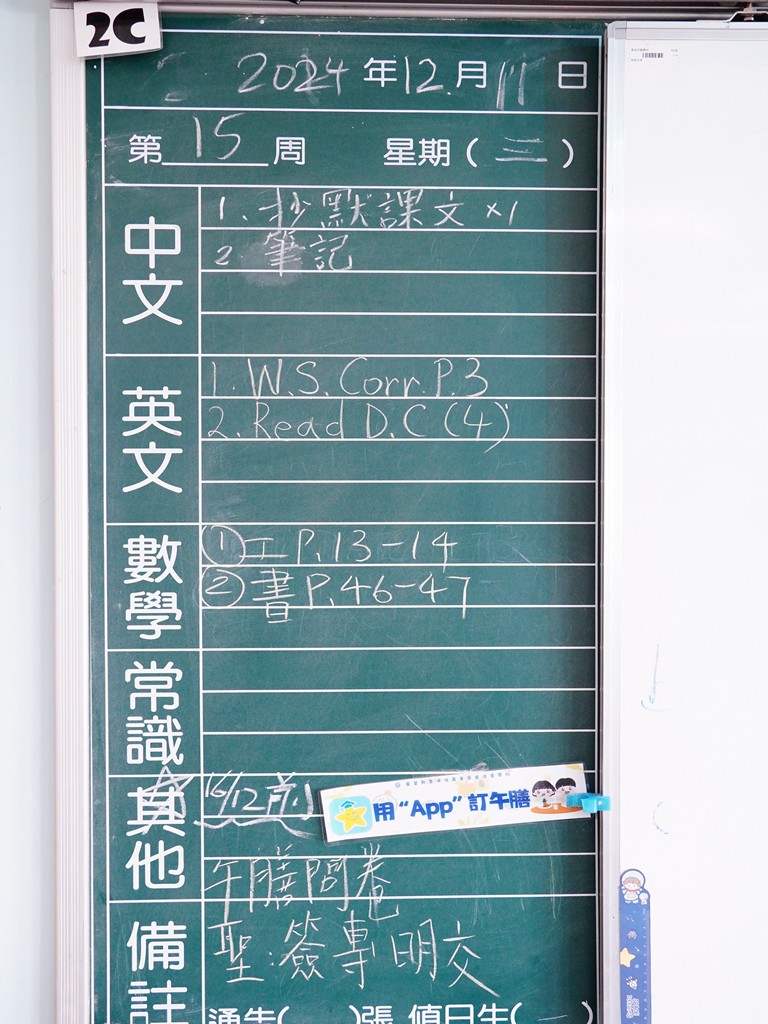 2C
2024 年 12 月 11 日
第 15 周 星期 ( 三 )
中文
1. 抄默課文 ×1
2. 筆記
英文
1. W.S. Corr. P.3
2. Read D.C (4)
數學
① 工 P.13-14
② 書 P.46-47
常識
其他
16/12 前
用 “App” 訂午膳
午膳問卷
備註
聖:簽專明交
通告( )張 值日生( 一 )